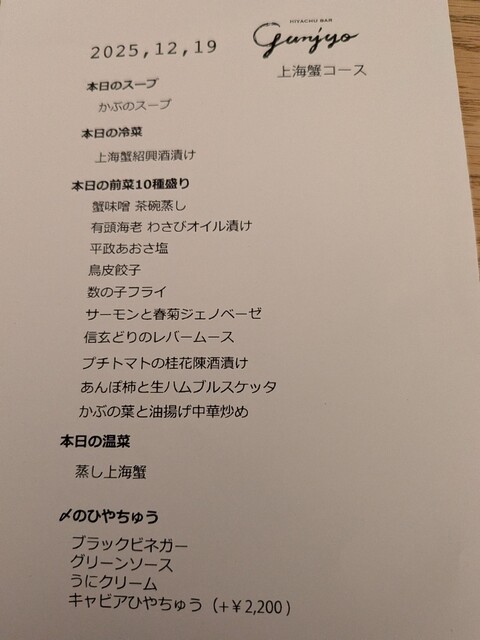 2025,12,19
HIYACHU BAR
Gunjyo
上海蟹コース
本日のスープ
かぶのスープ
本日の冷菜
上海蟹紹興酒漬け
本日の前菜10種盛り
蟹味噌 茶碗蒸し
有頭海老 わさびオイル漬け
平政あおさ塩
鳥皮餃子
数の子フライ
サーモンと春菊ジェノベーゼ
信玄どりのレバームース
プチトマトの桂花陳酒漬け
あんぽ柿と生ハムブルスケッタ
かぶの葉と油揚げ中華炒め
本日の温菜
蒸し上海蟹
〆のひやちゅう
ブラックビネガー
グリーンソース
うにクリーム
キャビアひやちゅう（+￥2,200）